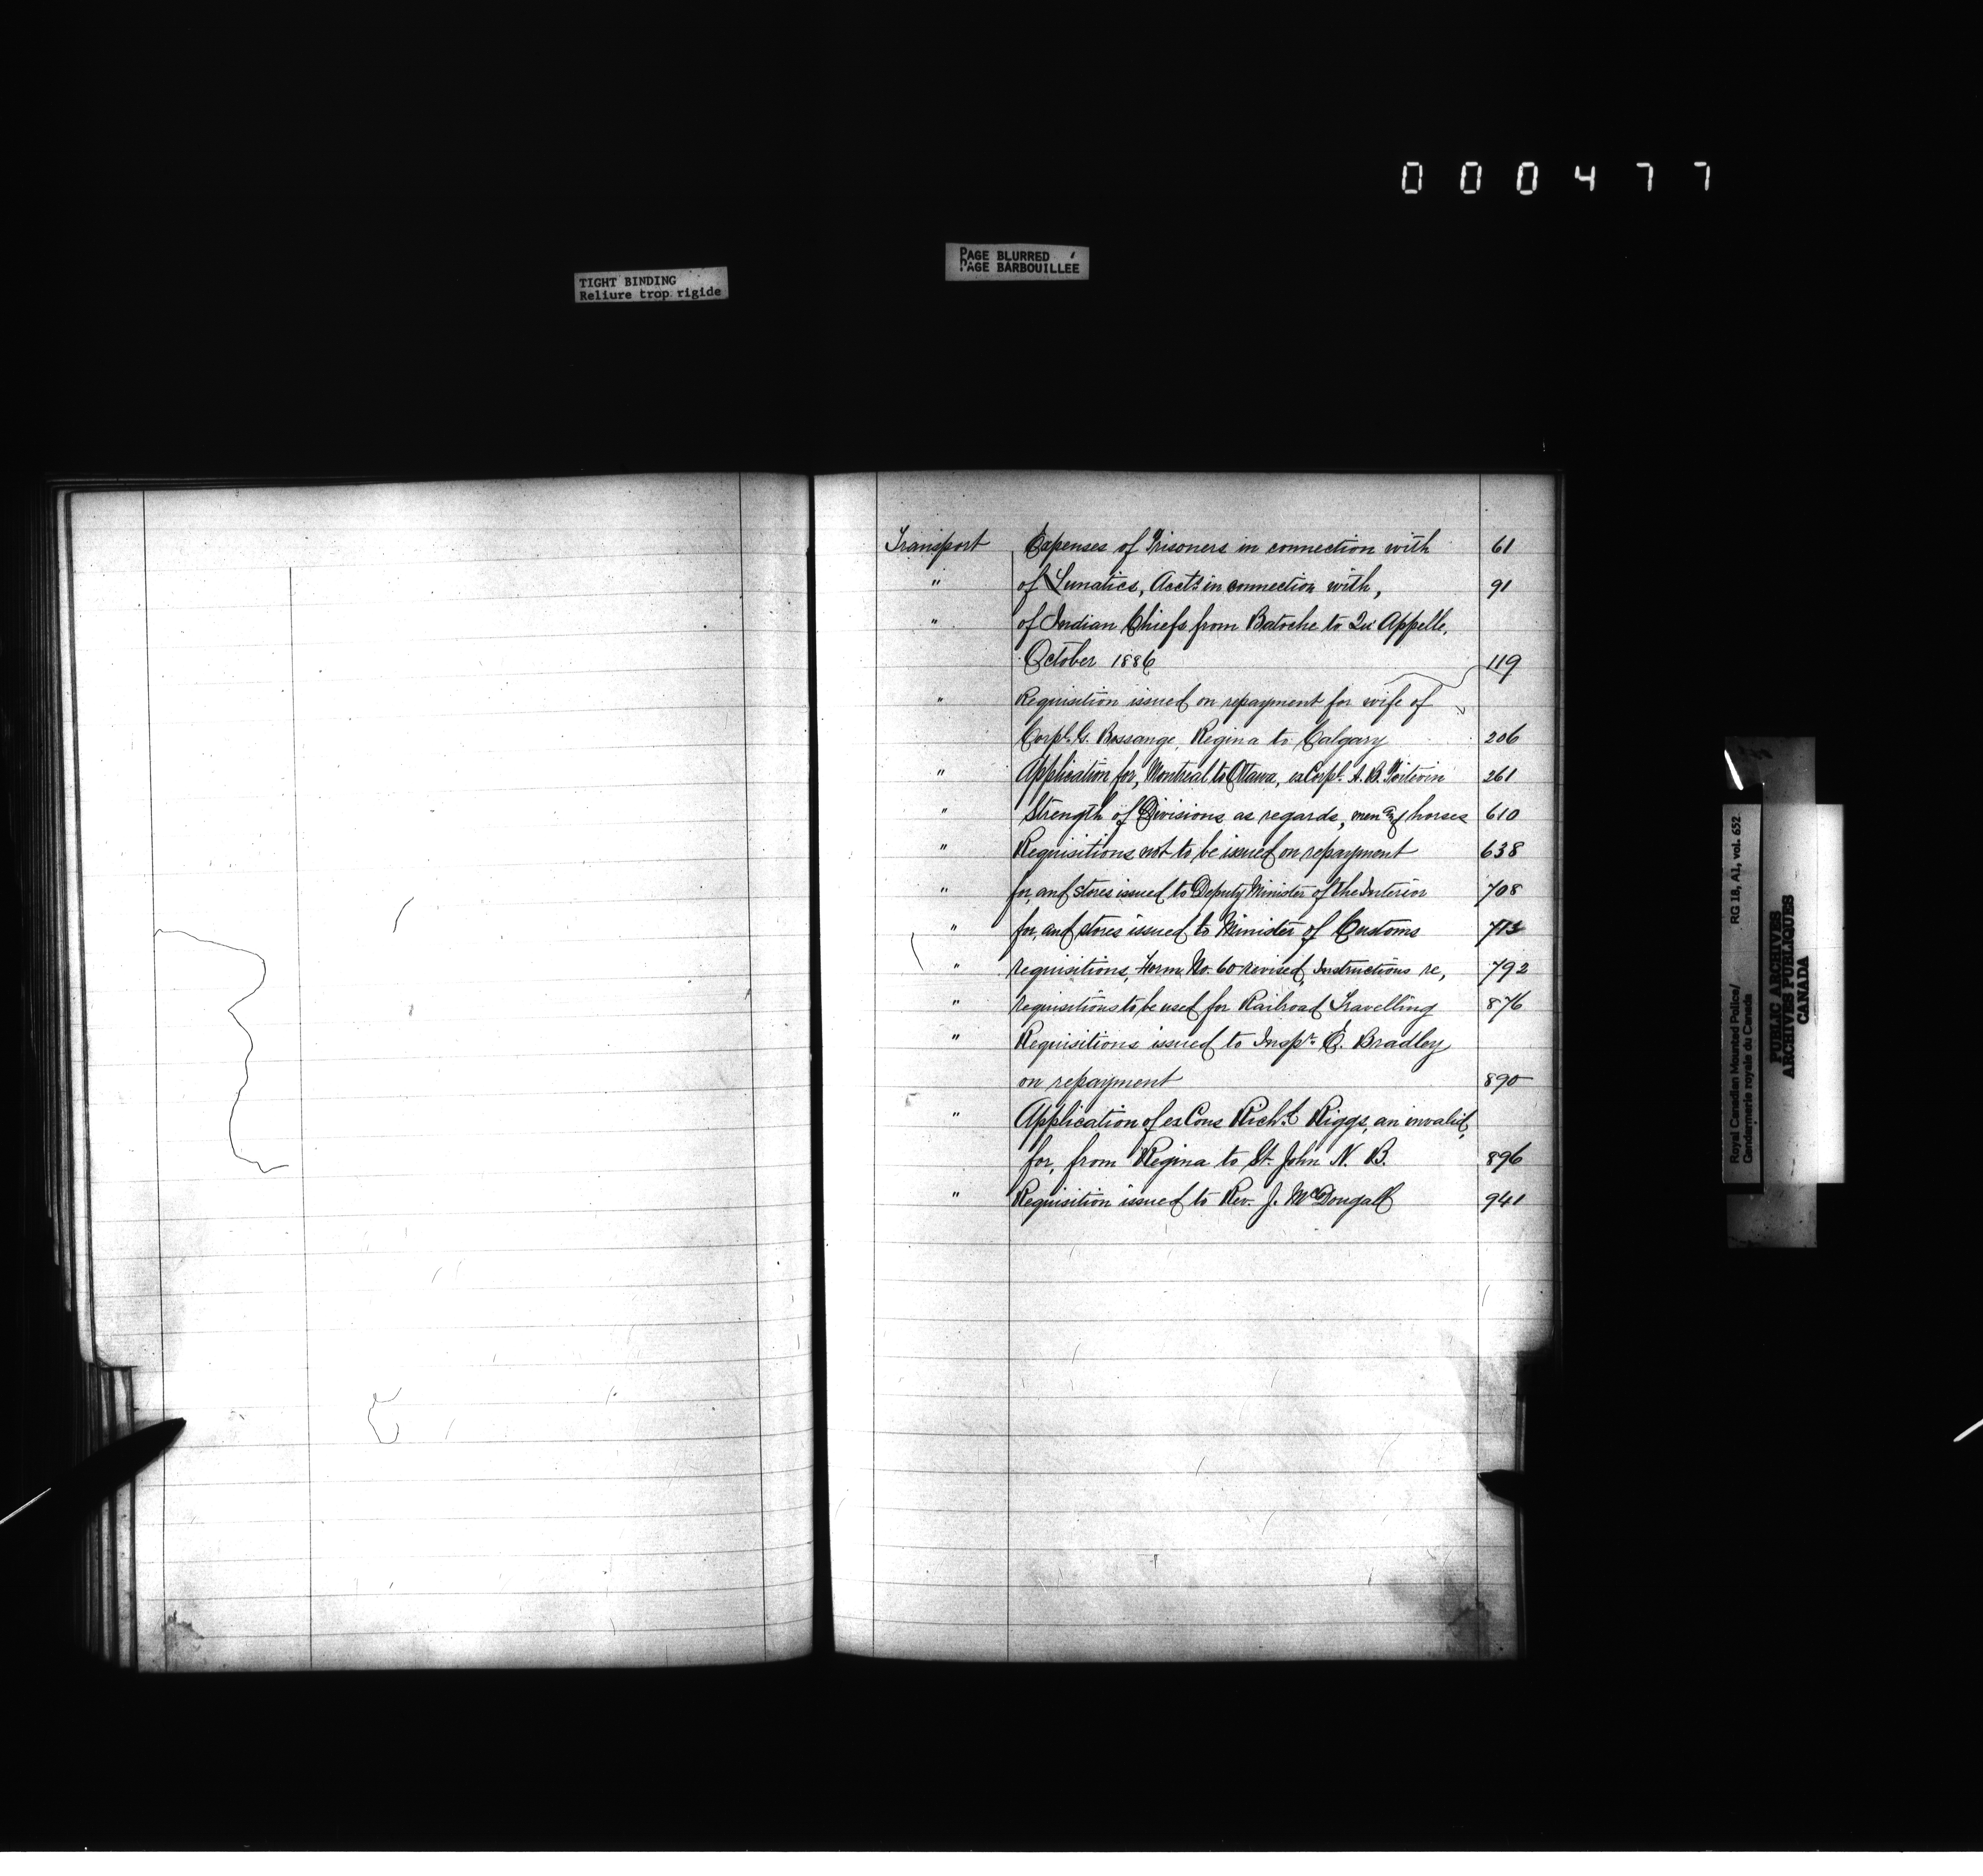 000477
PAGE BLURRED
PAGE BARBOUILLEE
TIGHT BINDING
Reliure trop rigide
Transport Expenses of Prisoners in connection with 61
" of Lunatics, Accts in connection with, 91
" of Indian Chiefs from Batoche to Qu'Appelle,
October 1886 119
" Requisition issued on repayment for wife of
Corpl. G. Bossange, Regina to Calgary 206
" Application for, Montreal to Ottawa, ex Corpl. A. B. Poitevin 261
" Strength of Divisions as regards, men and horses 610
" Requisitions not to be issued on repayment 638
" for, and stores issued to Deputy Minister of the Interior 708
" for, and stores issued to Minister of Customs 713
" requisitions, Form No. 60 revised, Instructions re, 792
" requisitions to be used for Railroad Travelling 876
" Requisitions issued to Inspr. E. Bradley
on repayment 890
" Application of ex Cons Richd Riggs, an invalid,
for, from Regina to St. John N. B. 896
" Requisition issued to Rev. J. McDougall 941
Royal Canadian Mounted Police/ RG 18, A1, vol. 652
Gendarmerie royale du Canada
PUBLIC ARCHIVES
ARCHIVES PUBLIQUES
CANADA